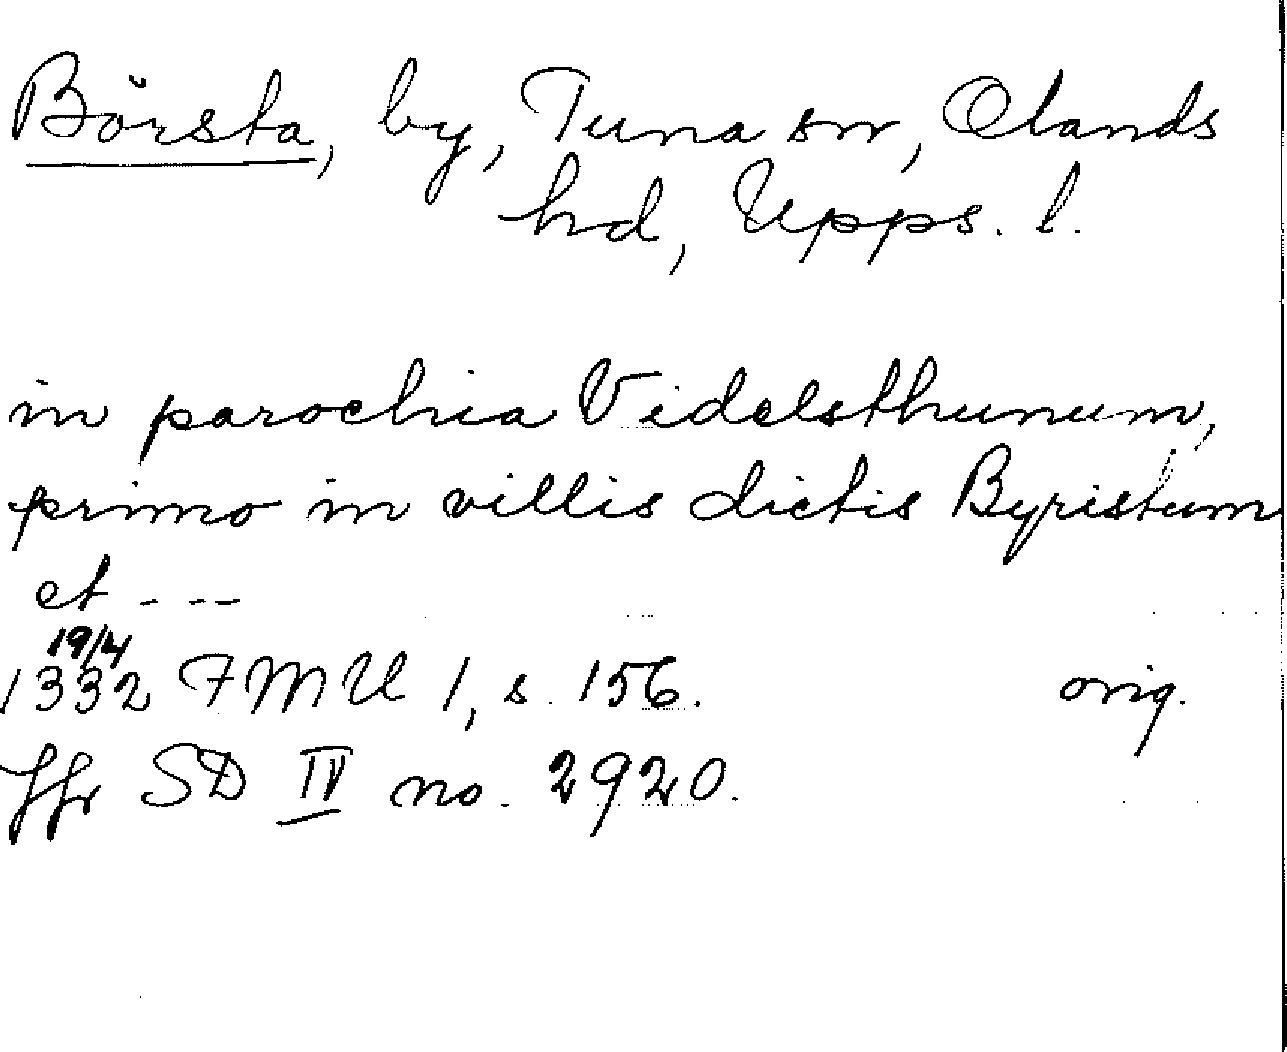 Börsta, by, Tuna sn, Olands
hd, Upps. l.
in parochia Videlsthunum,
primo in villis dictis Byristum
et - - -
19/4
1332 FMU 1, s. 156. orig.
Jfr SD IV no. 2920.